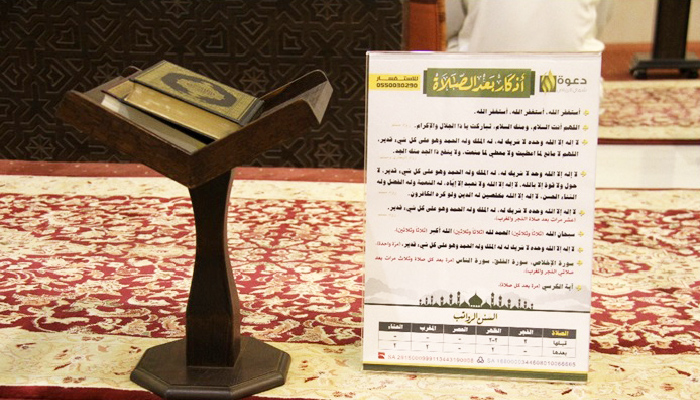 دعوة
أذكار بعد الصلاة
للاستفسار
0550030290
أستغفر الله، أستغفر الله، أستغفر الله.
اللهم أنت السلام، ومنك السلام، تباركت يا ذا الجلال والإكرام.
لا إله إلا الله وحده لا شريك له، له الملك وله الحمد وهو على كل شيء قدير،
اللهم لا مانع لما أعطيت ولا معطي لما منعت، ولا ينفع ذا الجد منك الجد.
لا إله إلا الله وحده لا شريك له، له الملك وله الحمد وهو على كل شيء قدير، لا
حول ولا قوة إلا بالله، لا إله إلا الله ولا نعبد إلا إياه، له النعمة وله الفضل وله
الثناء الحسن، لا إله إلا الله مخلصين له الدين ولو كره الكافرون.
لا إله إلا الله وحده لا شريك له، له الملك وله الحمد وهو على كل شيء قدير.
(عشر مرات بعد صلاة الفجر والمغرب).
سبحان الله (ثلاثا وثلاثين) الحمد لله (ثلاثا وثلاثين) الله أكبر (ثلاثا وثلاثين)
لا إله إلا الله وحده لا شريك له، له الملك وله الحمد وهو على كل شيء قدير. (مرة واحدة).
سورة الإخلاص، سورة الفلق، سورة الناس (مرة بعد كل صلاة وثلاث مرات بعد
صلاتي الفجر والمغرب).
آية الكرسي (مرة بعد كل صلاة).
السنن الرواتب
الصلاة الفجر الظهر العصر المغرب العشاء
قبلها
بعدها